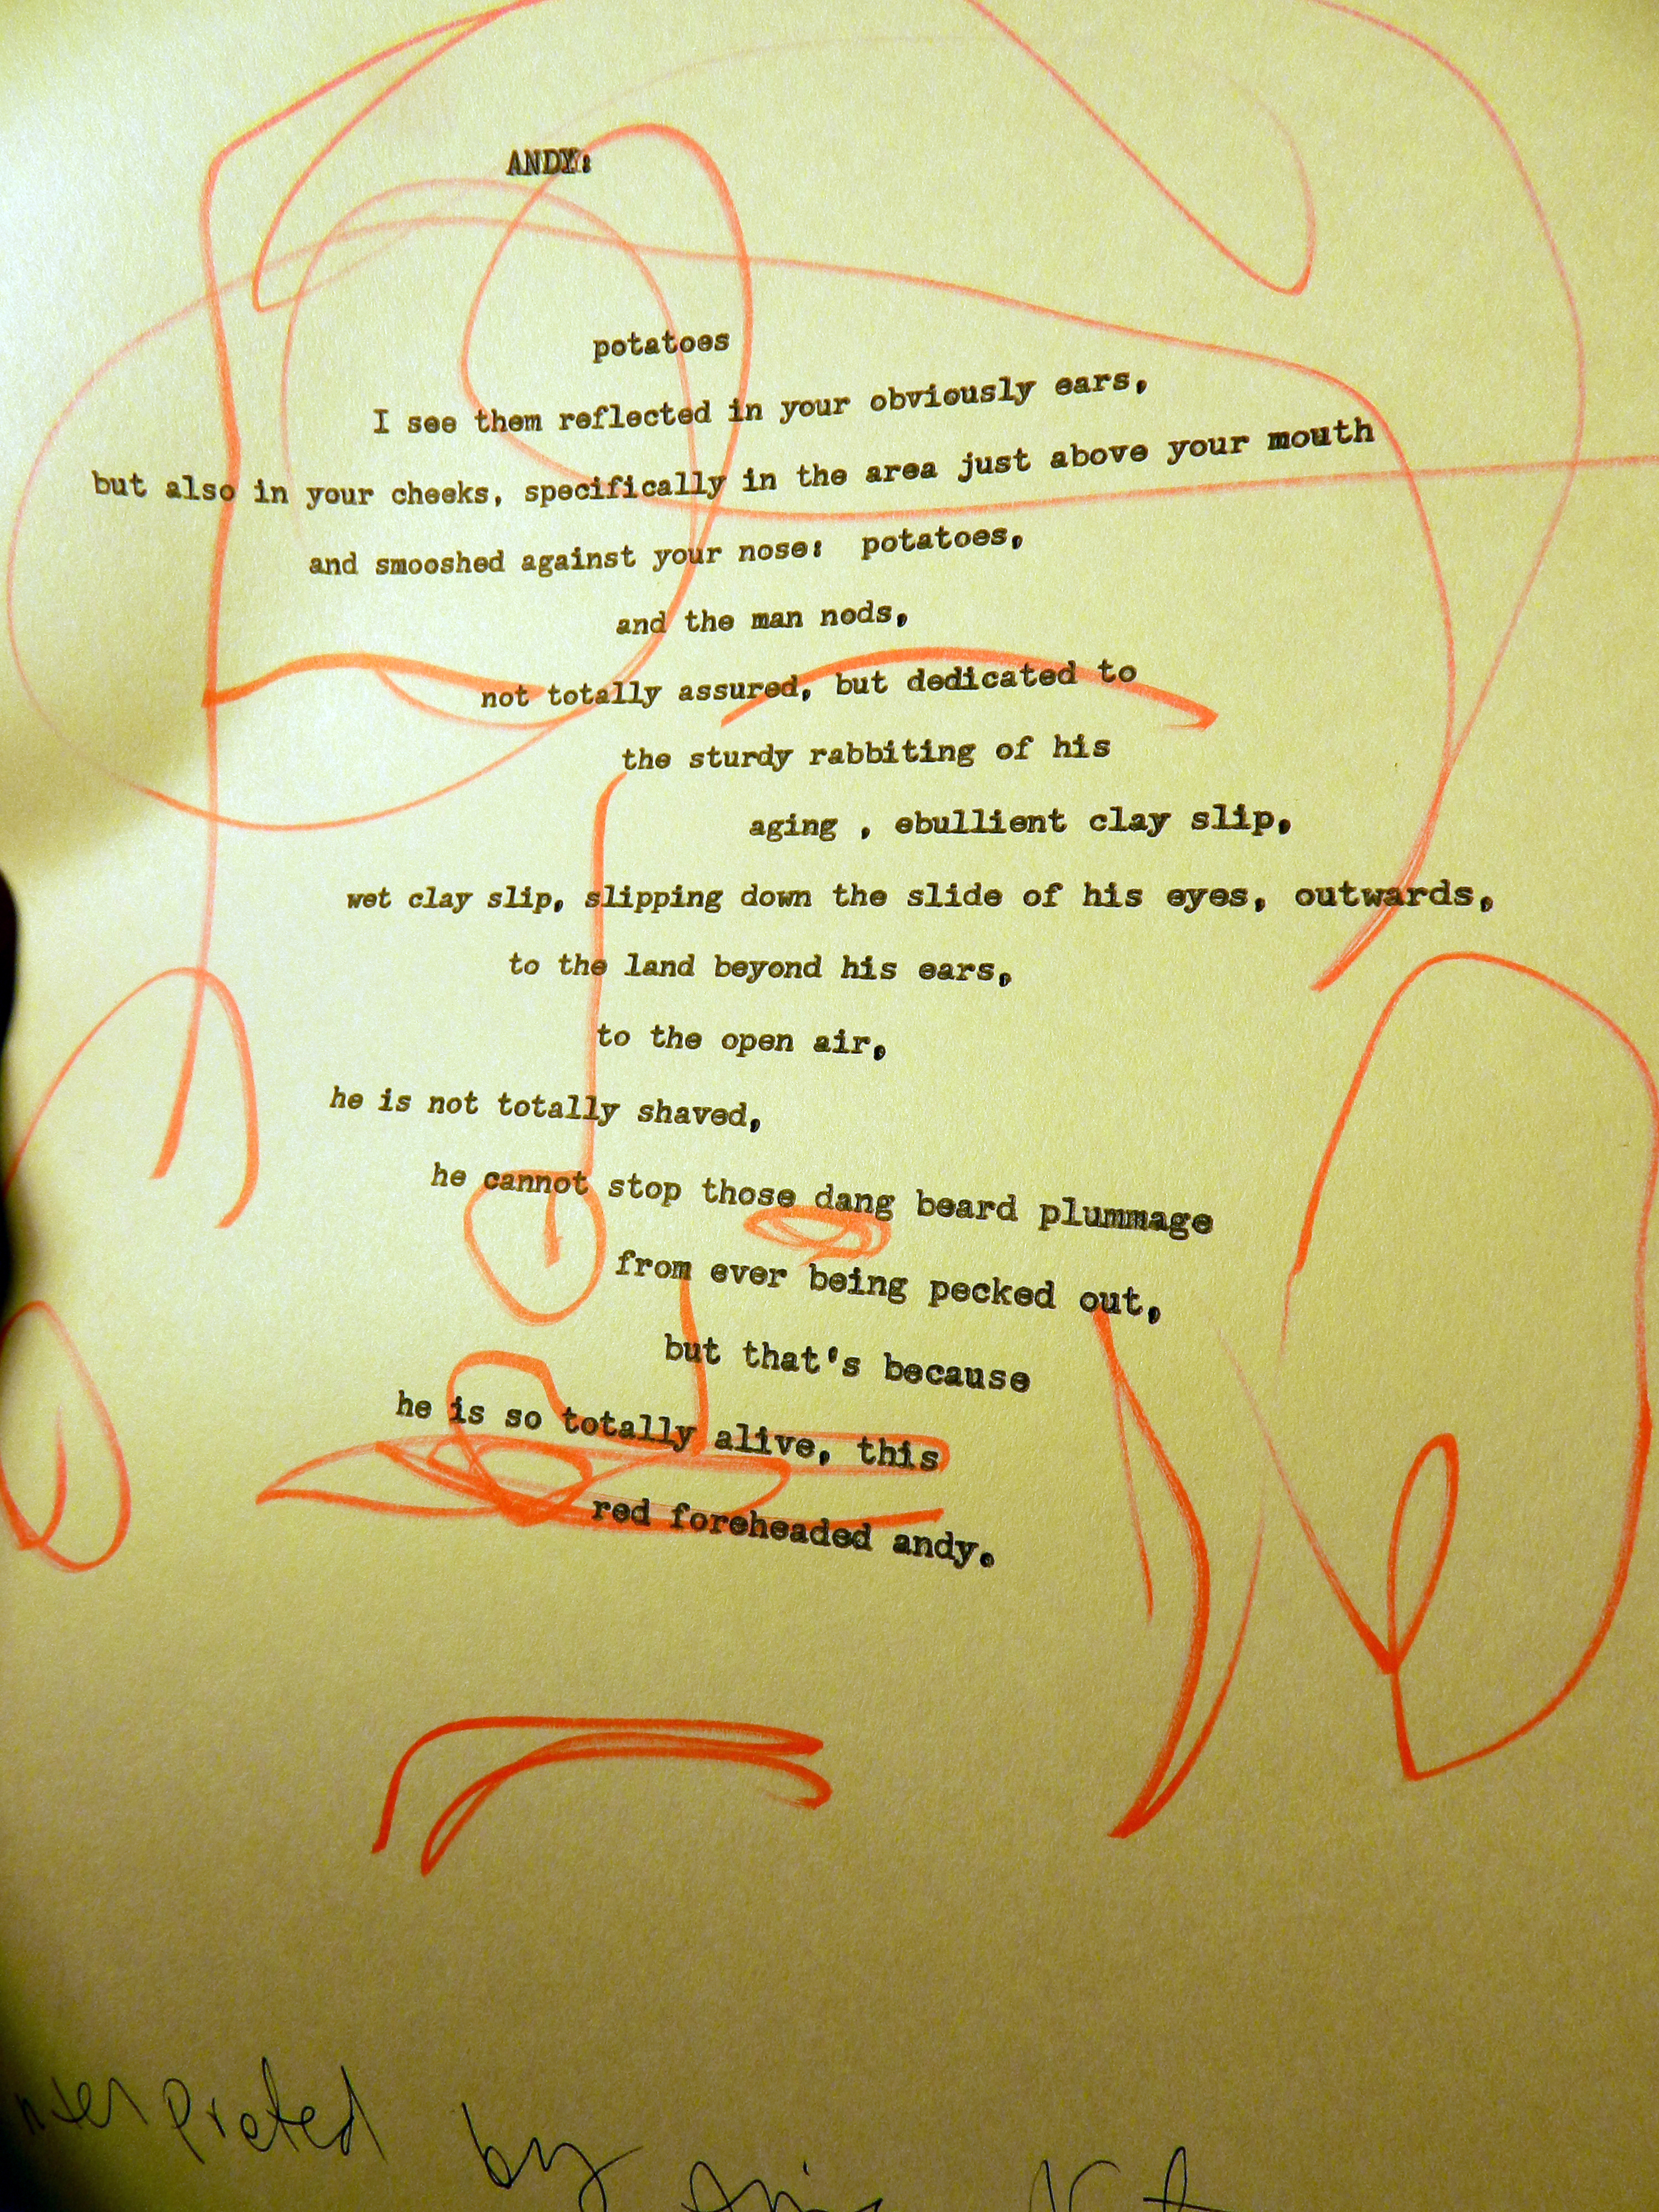 ANDY:
potatoes
I see them reflected in your obviously ears,
but also in your cheeks, specifically in the area just above your mouth
and smooshed against your nose: potatoes,
and the man nods,
not totally assured, but dedicated to
the sturdy rabbiting of his
aging , ebullient clay slip,
wet clay slip, slipping down the slide of his eyes, outwards,
to the land beyond his ears,
to the open air,
he is not totally shaved,
he cannot stop those dang beard plummage
from ever being pecked out,
but that's because
he is so totally alive, this
red foreheaded andy.
nterpreted by